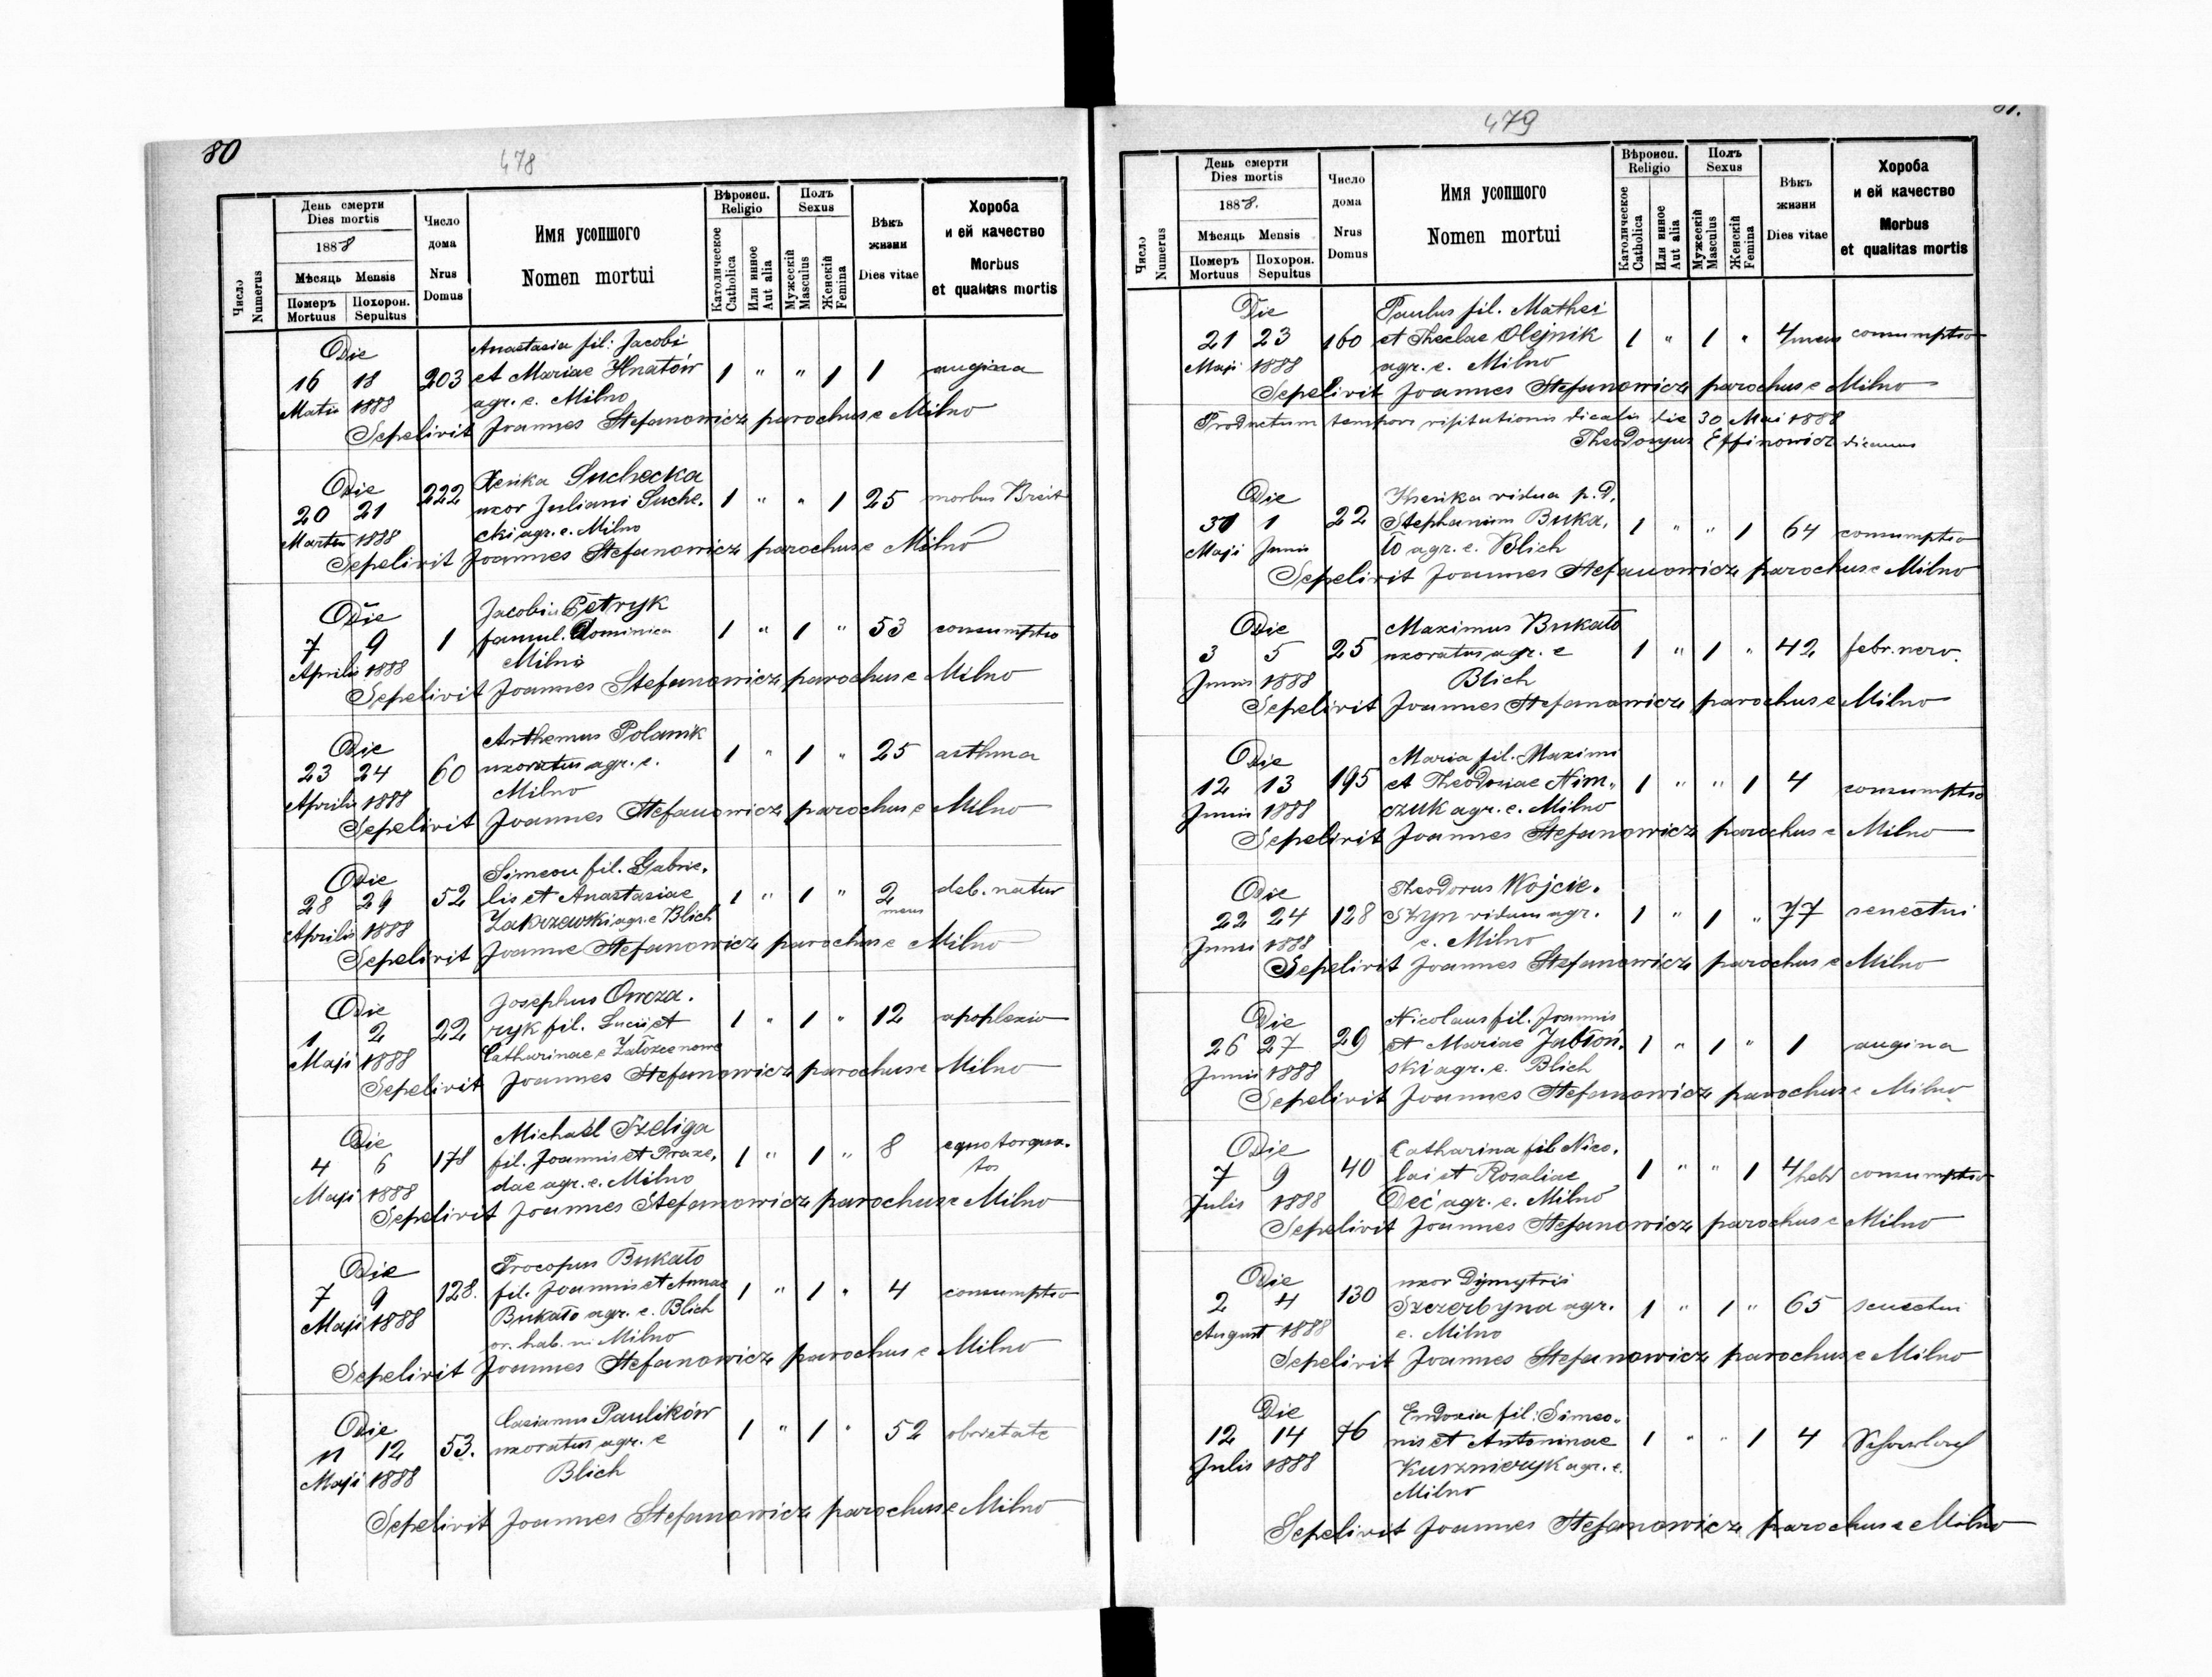 80
478
День смерти
Dies mortis
1888
Мѣсяць Mensis
Померъ
Mortuus
Похорон.
Sepultus
Число
Numerus
Число
дома
Nrus
Domus
Имя усопшого
Nomen mortui
Вѣроисп.
Religio
Католическое
Catholica
Или инное
Aut alia
Полъ
Sexus
Мужескій
Masculus
Женскій
Femina
Вѣкъ
жизни
Dies vitae
Хороба
и ей качество
Morbus
et qualitas mortis
Die
Anastasia fil: Jacobi
16 18 203 et Mariae Hnatów 1 " " 1 1 angina
1888 agr. e. Milno
Sepelivit Joannes Stefanowicz parochus e Milno
Die 222 Xenika Suchecka
20 21 uxor Juliani Suche- 1 " " 1 25 morbus
1888 cki agr. e. Milno
Sepelivit Joannes Stefanowicz parochus e Milno
Die Petryk
7 9 1 famul. Dominica 1 " 1 " 53 consumptio
Aprilis 1888 Milno
Sepelivit Joannes Stefanowicz parochus e Milno
Die Arthemus Polanik
23 24 60 uxoratus agr. e. 1 " 1 " 25 asthma
Aprilis 1888 Milno
Sepelivit Joannes Stefanowicz parochus e Milno
Die Simeon fil. Gabrie-
28 29 52 lis et Anastasiae 1 " 1 " 2 mens deb. natur
Aprilis 1888 Zakrzewski agr. e Blich
Sepelivit Joanne Stefanowicz parochus e Milno
Die Josephus
1 2 22 ryk fil. Lucii et 1 " 1 " 12 apoplexio
Maji 1888 Catharinae e
Sepelivit Joannes Stefanowicz parochus e Milno
Die Michaël Szeliga
4 6 178 fil. Joannis et Praxe- 1 " 1 " 8
Maji 1888 dae agr. e. Milno
Sepelivit Joannes Stefanowicz parochus e Milno
Die Procopus Bukało
7 9 128. fil. Joannis et Annae 1 " 1 " 4 consumptio
Maji 1888 Bukało agr. e. Blich
hab. Milno
Sepelivit Joannes Stefanowicz parochus e Milno
Die Casianus Paulików
11 12 53. uxoratus agr. e 1 " 1 " 52
Maji 1888 Blich
Sepelivit Joannes Stefanowicz parochus e Milno
479
81.
День смерти
Dies mortis
1888.
Мѣсяць Mensis
Померъ
Mortuus
Похорон.
Sepultus
Число
Numerus
Число
дома
Nrus
Domus
Имя усопшого
Nomen mortui
Вѣроисп.
Religio
Католическое
Catholica
Или инное
Aut alia
Полъ
Sexus
Мужескій
Masculus
Женскій
Femina
Вѣкъ
жизни
Dies vitae
Хороба
и ей качество
Morbus
et qualitas mortis
Die Paulus fil. Mathei
21 23 160 et Theclae Olejnik 1 " 1 " 4 mens consumptio
Maji 1888 agr. e. Milno
Sepelivit Joannes Stefanowicz parochus e Milno
Productum die 30 Mai 1888
Theodosyus Effinowicz
Die vidua p. d.
31 1 22 Stephanum Buka- 1 " " 1 64 consumptio
Maji Junii ło agr. e. Blich
Sepelivit Joannes Stefanowicz parochus e Milno
Die Maximus Bukało
3 5 25 uxoratus agr. e 1 " 1 " 42 febr. nerv.
Junii 1888 Blich
Sepelivit Joannes Stefanowicz parochus e Milno
Die Maria fil. Maximi
12 13 195 et Theodosiae Nim- 1 " " 1 4 consumptio
Junii 1888 czuk agr. e. Milno
Sepelivit Joannes Stefanowicz parochus e Milno
Die Theodorus Wojcie-
22 24 128 szyn viduus agr. 1 " 1 " 77 senectus
Junii 1888 e. Milno
Sepelivit Joannes Stefanowicz parochus e Milno
Die Nicolaus fil. Joannis
26 27 29 et Mariae Jabłoń- 1 " 1 " 1 angina
Junii 1888 ski agr. e. Blich
Sepelivit Joannes Stefanowicz parochus e Milno
Die Catharina fil Nico-
7 9 40 lai et Rosaliae 1 " " 1 4 hebd consumptio
Julis 1888 Deć agr. e. Milno
Sepelivit Joannes Stefanowicz parochus e Milno
Die uxor Dymytrii
2 4 130 Szczerbyna agr. 1 " 1 " 65 senectus
August 1888 e. Milno
Sepelivit Joannes Stefanowicz parochus e Milno
Die Eudoxia fil: Simeo-
12 14 76 nis et Antoninae 1 " " 1 4
Julis 1888 Kusznieryk agr. e.
Milno
Sepelivit Joannes Stefanowicz parochus e Milno